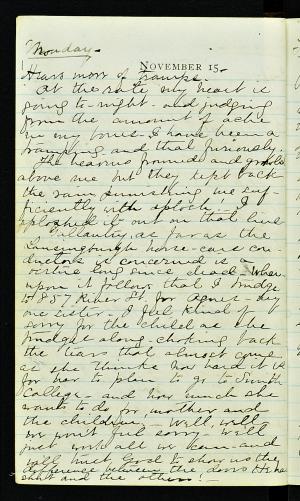 Monday -
NOVEMBER 15.
Hours more of tramps.
At the rate my heart is
going to-night - and judging
from the amount of ache
in my bones - I have been a
tramping and that furiously.
The heavens frowned and
above me but they kept back
the rain punishing me suf-
ficiently with "splosh"! I
sploshed it out on that line
Gallantry, as far as the
Lansingburgh horse-care con-
ductors is concerned is a
virtue long since dead. When-
upon it follows that I trudge
to 857 River St. for Agnes - my
one sister - I feel kind of
sorry for the child as she
trudges along - choking back
the tears that almost come
as she thinks how hard it is
for her to plan to go to Smith
College - and how much she
wants to do for mother and
the children - Well, will
we won't feel sorry - will
just work all we can - and
will trust God to show us the
difference between the doors He has
shut and the others! -